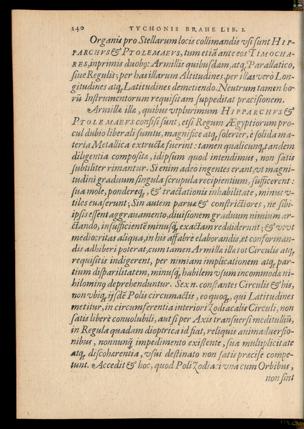 240 TYCHONIS BRAHE LIB. I.
Organis pro Stellarum locis collimandis vsi sunt HIP-
PARCHVS & PTOLEMAEVS, tum etiã ante eos TIMOCHA-
RES, inprimis duobus: Armillis quibusdam, atq; Parallatico,
siue Regulis; per has illarum Altitudines, per illas verò Lon-
gitudines atq; Latitudines demetiendo. Neutrum tamen ho-
rũ Instrumentorum requisitam suppeditat præcisionem.
Armillæ illæ, quibus vtplurimum HIPPARCHVS &
PTOLEMAEVS confisi sunt, etsi Regum Ægyptiorum pro-
cul dubio liberali sumtu, magnificè atq; solerter, è solida ma-
teria Metallica extructæ fuerint: tamen qualicunq; tandem
diligentia composita, id ipsum quod intendimus, non satis
subtiliter rimantur. Si enim adeo ingentes erant, vt magni-
tudini graduum singula scrupula recipientium, sufficerent:
sua mole, pondereq;, & tractationis inhabilitate, minus v-
tiles euaserunt; Sin autem paruæ & constrictiores, ne sibi-
ipsis essent aggrauamento, diuisionem graduum nimium ar-
ctando, insufficientẽ minusq; exactam reddiderunt: & vt vt
mediocritas aliqua, in his affabrè elaborandis, et conforman-
dis adhiberi poterat, cum tamen Armillæ illæ tot Circulis atq;
requisitis indigerent, per nimiam implicationem atq; par-
tium disparilitatem, minusq; habilem vsum incommoda ni-
hilominus deprehenduntur. Sex n. constantes Circulis & his,
non vbiq; ijsdẽ Polis circumactis, eo quoq; qui Latitudines
metitur, in circumferentia interiori Zodiacalis Circuli, non
satis liberè conuolubili, aut si per Axis transuersi meditulliũ,
in Regula quadam dioptrica id fiat, reliquis animaduersio-
nibus, nonnunq; impedimento existente, sua multiplicitate
atq; discohærentia, vsui destinato non satis præcisè compe-
tunt. Accedit & hoc, quod Poli Zodiaci vna cum Orbibus,
non sint